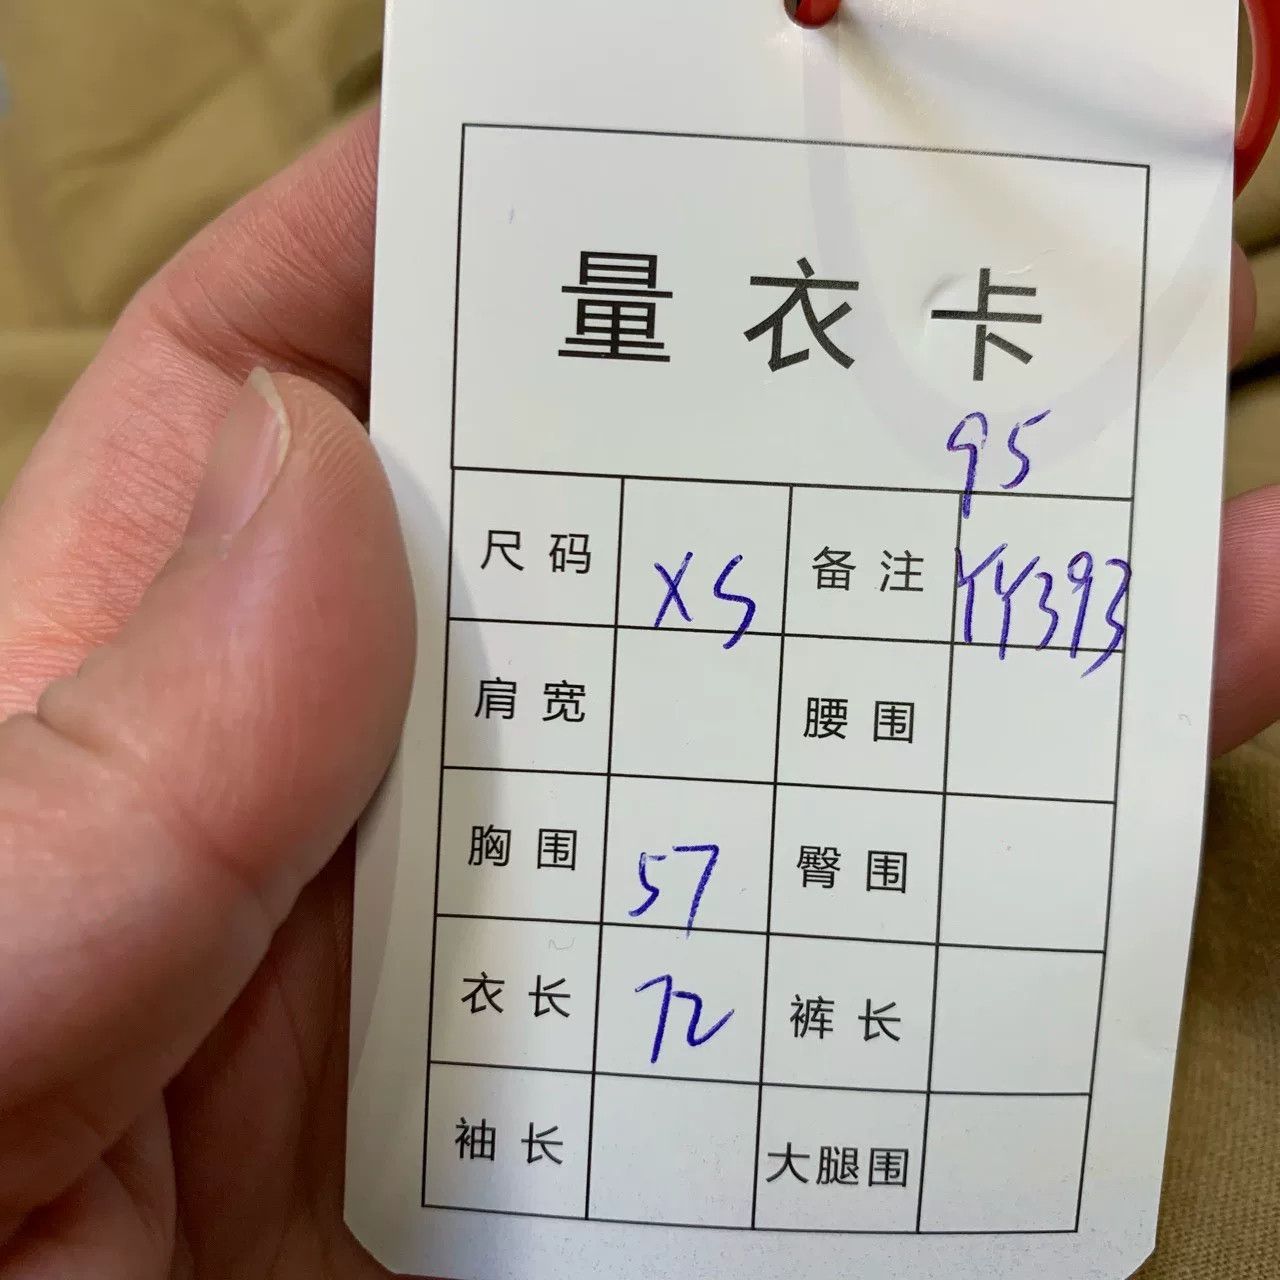 量衣卡
95
尺码 XS 备注 YY393
肩宽 腰围
胸围 57 臀围
衣长 72 裤长
袖长 大腿围